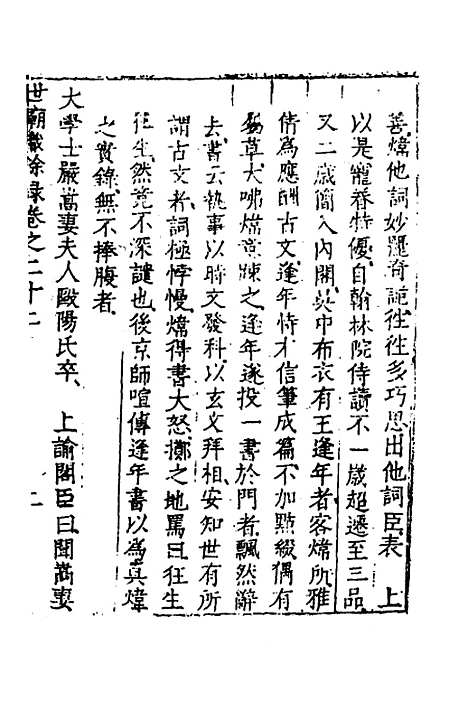 善煒他詞妙麗奇詭往往多巧思出他詞臣表　上
以是寵眷特優自翰林院侍讀不一歲超遷至三品
又二歲簡入內閣吳中布衣有王逢年者客煒所雅
倩為應酬古文逢年恃才信筆成篇不加點綴偶有
草大咈煒意踈之逢年遂投一書於門者飄然辭
去書云執事以時文發科以玄文拜相安知世有所
謂古文者詞極悖慢煒得書大怒擲之地罵曰狂生
狂生然竟不深譴也後京師喧傳逢年書以為真煒
之實錄無不捧腹者
大學士嚴嵩妻夫人歐陽氏卒　上諭閣臣曰聞嵩妻
世廟識餘錄卷之二十二　二